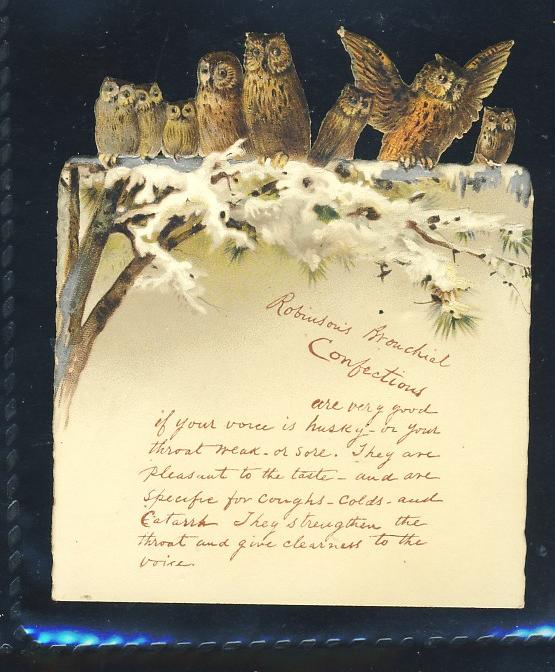 Robinson's Bronchial
Confections
are very good
if your voice is husky - or your
throat weak - or sore. They are
pleasant to the taste - and are
specific for coughs - colds - and
Catarrh They strengthen the
throat and give clearness to the
voice.